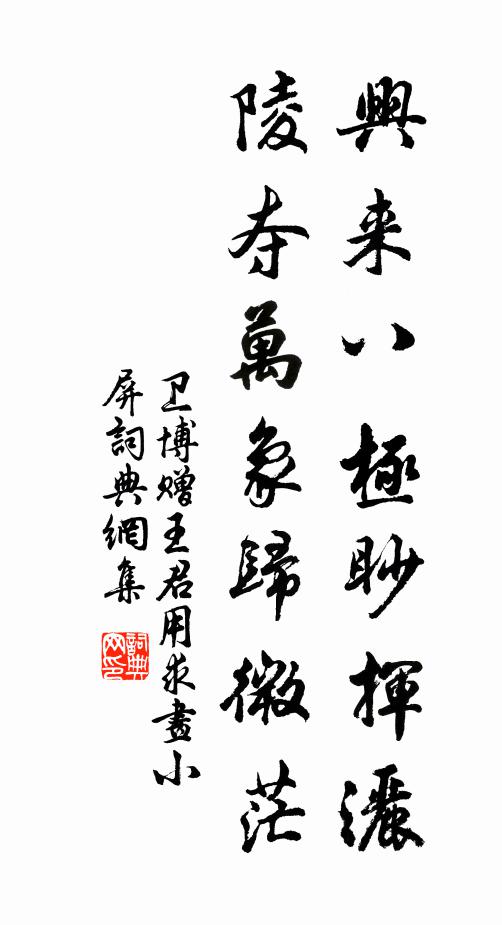 興来八極眇揮灑
陵夺萬象歸微茫
卫博赠王君用求畫小
屏詞典網集
詞典网印